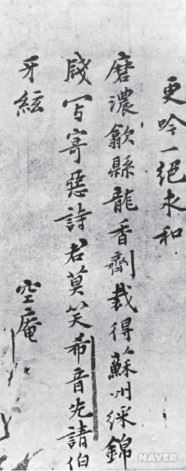 更吟一絕求和
磨濃歙縣龍香劑裁得蘇州綵錦
牋写寄惡詩君莫笑希音先請伯
牙絃
空庵
NAVER